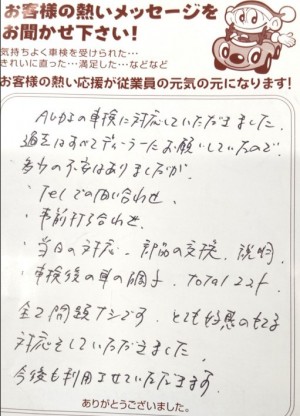 お客様の熱いメッセージを
お聞かせ下さい!
気持ちよく車検を受けられた…
きれいに直った…満足した…などなど
お客様の熱い応援が従業員の元気の元になります!
の車検に対応していただきました。
過去はすべてディーラーにお願いしていたので、
多少の不安はありましたが、
・Telでの問い合わせ、
・事前打ち合わせ、
・当日の対応、部品の交換、説明、
・車検後の車の調子、totalコスト
全て問題ナシです。とても好感のもてる
対応をしていただきました。
今後も利用させていただきます。
ありがとうございました。